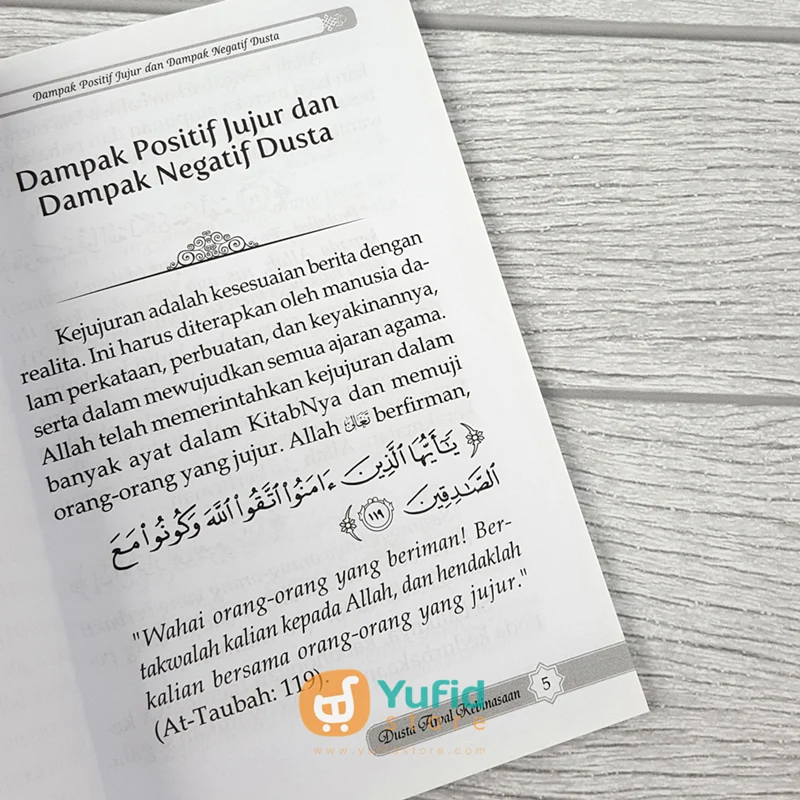 Dampak Positif Jujur dan Dampak Negatif Dusta
Dampak Positif Jujur dan
Dampak Negatif Dusta
Kejujuran adalah kesesuaian berita dengan
realita. Ini harus diterapkan oleh manusia da-
lam perkataan, perbuatan, dan keyakinannya,
serta dalam mewujudkan semua ajaran agama.
Allah telah memerintahkan kejujuran dalam
banyak ayat dalam KitabNya dan memuji
orang-orang yang jujur. Allah تعالى berfirman,
﴿ يَـٰٓأَيُّهَا ٱلَّذِينَ ءَامَنُوا۟ ٱتَّقُوا۟ ٱللَّهَ وَكُونُوا۟ مَعَ
ٱلصَّـٰدِقِينَ ١١٩ ﴾
"Wahai orang-orang yang beriman! Ber-
takwalah kalian kepada Allah, dan hendaklah
kalian bersama orang-orang yang jujur."
(At-Taubah: 119).
Yufid
store
www.yufidstore.com
Dusta Awal Kebinasaan 5